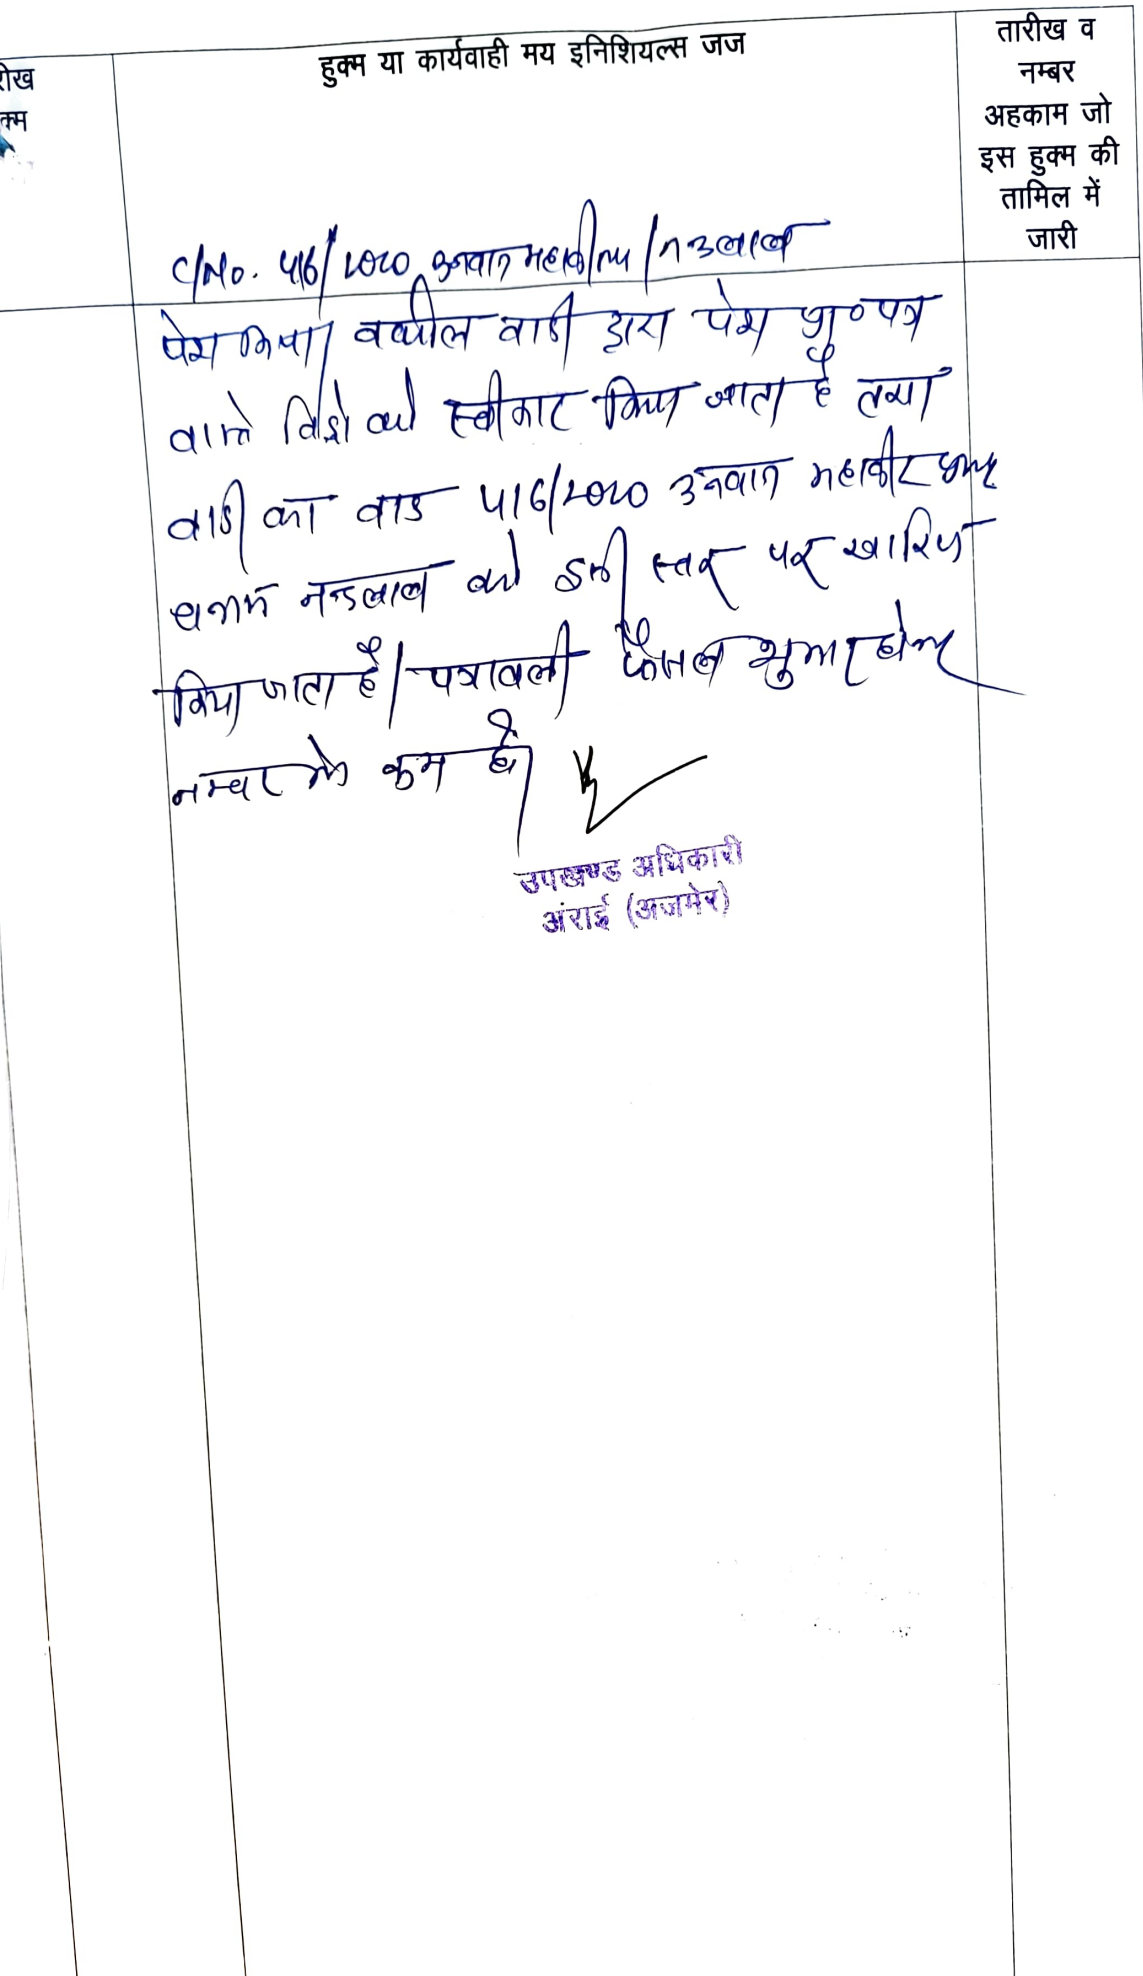 रीख
क्म
हुक्म या कार्यवाही मय इनिशियल्स जज
तारीख व
नम्बर
अहकाम जो
इस हुक्म की
तामिल में
जारी
C/No. 416/2020 उनवान महावीर / नन्दलाल
पेश किया। वकील वादी द्वारा पेश प्रा०पत्र
वास्ते विड्रो को स्वीकार किया जाता है तथा
वादी का वाद 416/2020 उनवान महावीर
बनाम नन्दलाल को इसी स्तर पर खारिज
किया जाता है। पत्रावली फैसल शुमार होकर
नम्बर से कम हो।
उपखण्ड अधिकारी
अंराई (अजमेर)